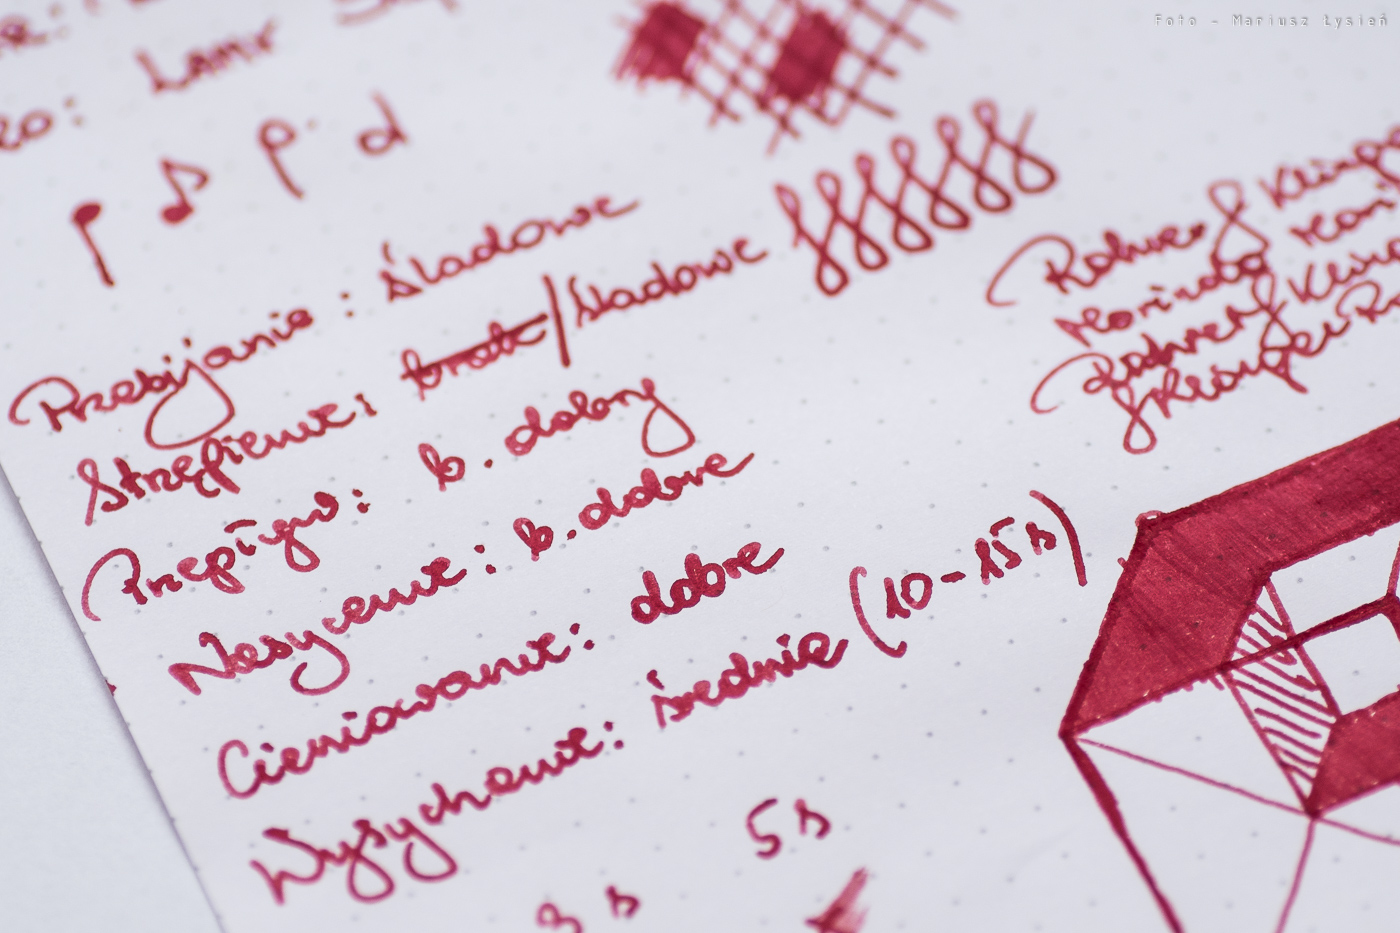 Foto - Mariusz Łysień
Lamy
Przebijanie: śladowe
Strzępienie: brak/śladowe
Przepływ: b. dobry
Nasycenie: b. dobre
Cieniowanie: dobre
Wysychanie: średnie (10-15s)
5 s
3 s
Rohrer & Kling
Morinda
Rohrer & Kling